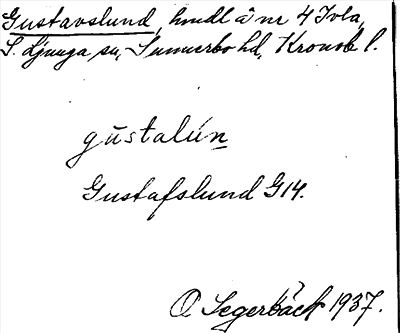 Gustavslund, hmdl å nr 4 Tvla,
S. Ljunga sn, Sunnerbo hd, Kronob l.
gustalún
Gustafslund G14.
O. Segerbäck 1937.